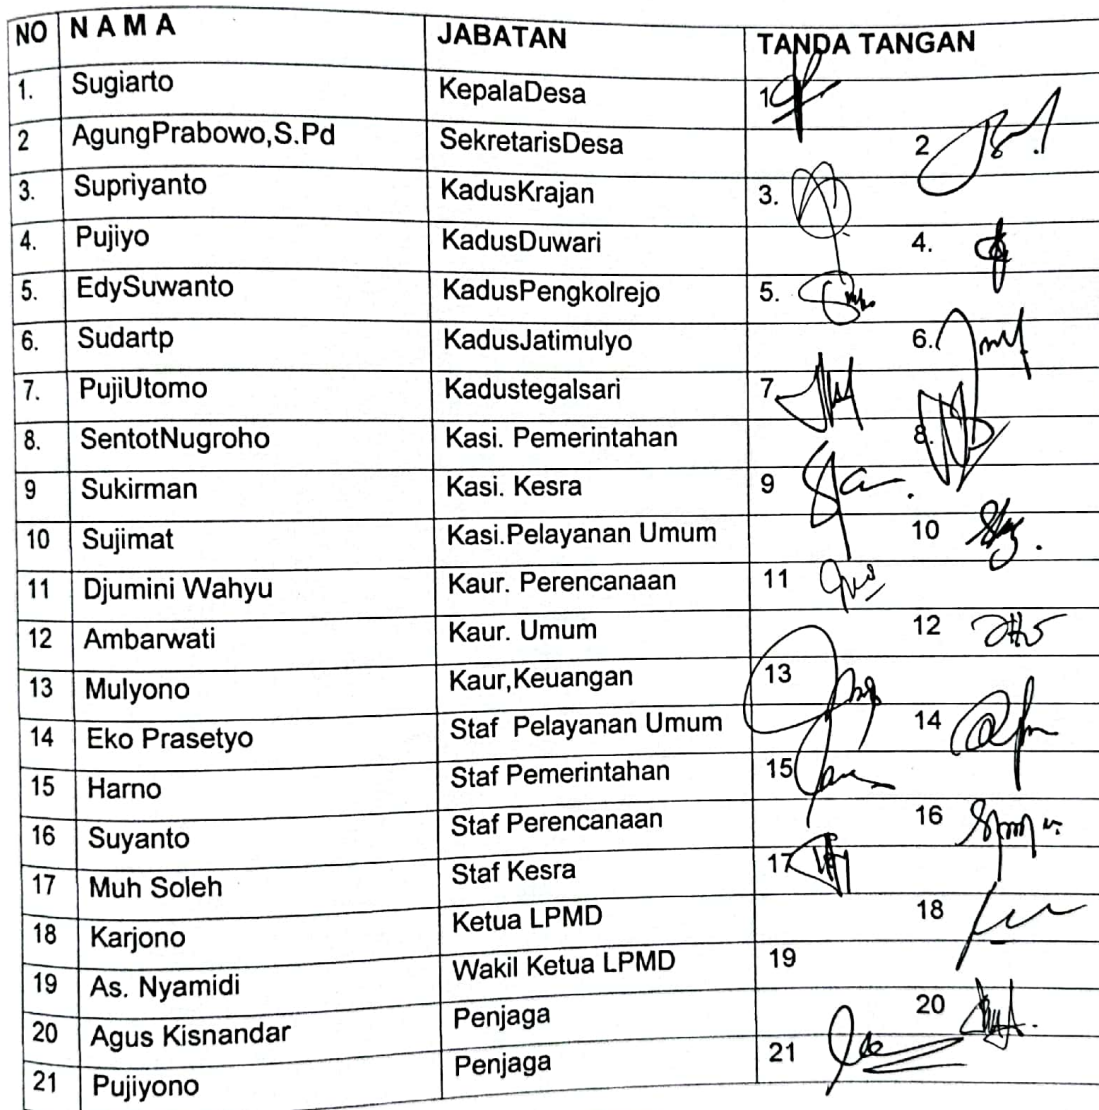 NO N A M A JABATAN TANDA TANGAN
1. Sugiarto KepalaDesa 1
2 AgungPrabowo,S.Pd SekretarisDesa 2
3. Supriyanto KadusKrajan 3.
4. Pujiyo KadusDuwari 4.
5. EdySuwanto KadusPengkolrejo 5.
6. Sudartp KadusJatimulyo 6.
7. PujiUtomo Kadustegalsari 7
8. SentotNugroho Kasi. Pemerintahan 8.
9 Sukirman Kasi. Kesra 9
10 Sujimat Kasi.Pelayanan Umum 10
11 Djumini Wahyu Kaur. Perencanaan 11
12 Ambarwati Kaur. Umum 12
13 Mulyono Kaur,Keuangan 13
14 Eko Prasetyo Staf Pelayanan Umum 14
15 Harno Staf Pemerintahan 15
16 Suyanto Staf Perencanaan 16
17 Muh Soleh Staf Kesra 17
18 Karjono Ketua LPMD 18
19 As. Nyamidi Wakil Ketua LPMD 19
20 Agus Kisnandar Penjaga 20
21 Pujiyono Penjaga 21